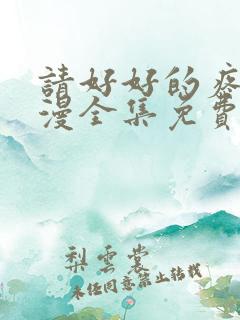 請好好的疼
漫全集免費
梨雲裳
未经同意禁止转载